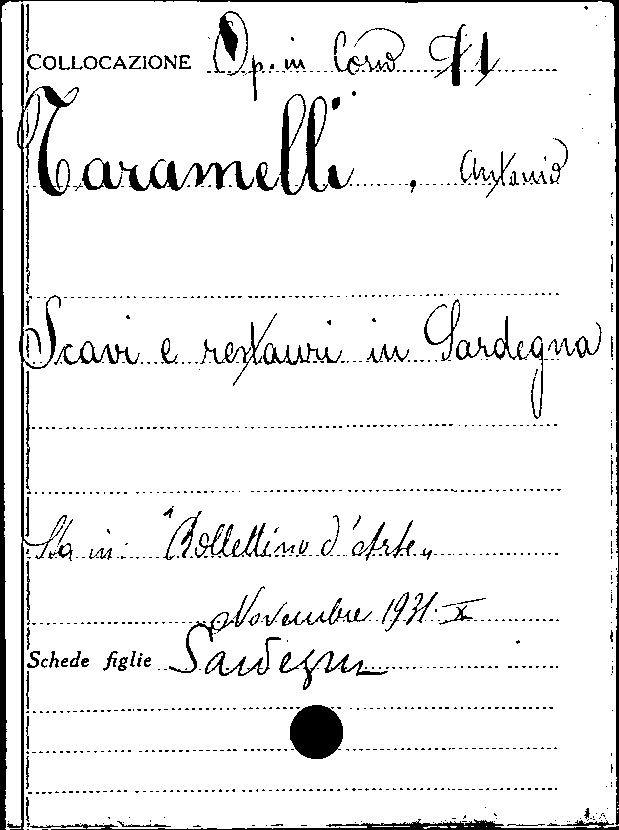 COLLOCAZIONE Op. in Corso 41
Taramelli, Antonio
Scavi e restauri in Sardegna
Sta in: "Bollettino d'Arte„
Novembre 1931. X
Schede figlie Sardegna